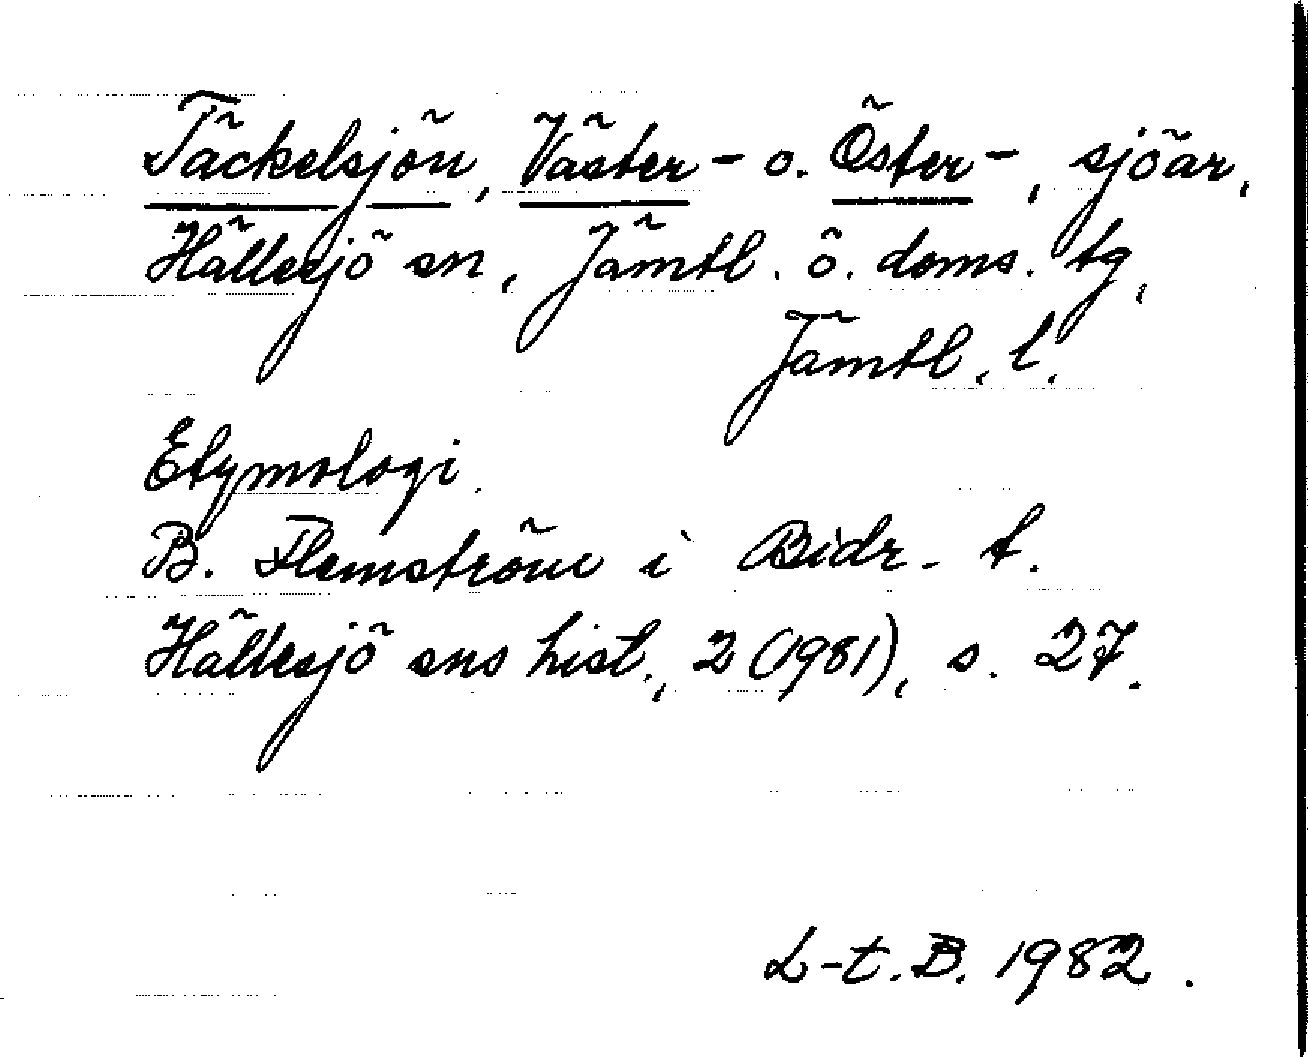 Täckelsjön, Väster- o. Öster-, sjöar,
Hällesjö sn, Jämtl. ö. doms. tg,
Jämtl. l.
Etymologi.
B. Flemström i Bidr. t.
Hällesjö sns hist., 2 (1981), s. 27.
L-t. B. 1982.